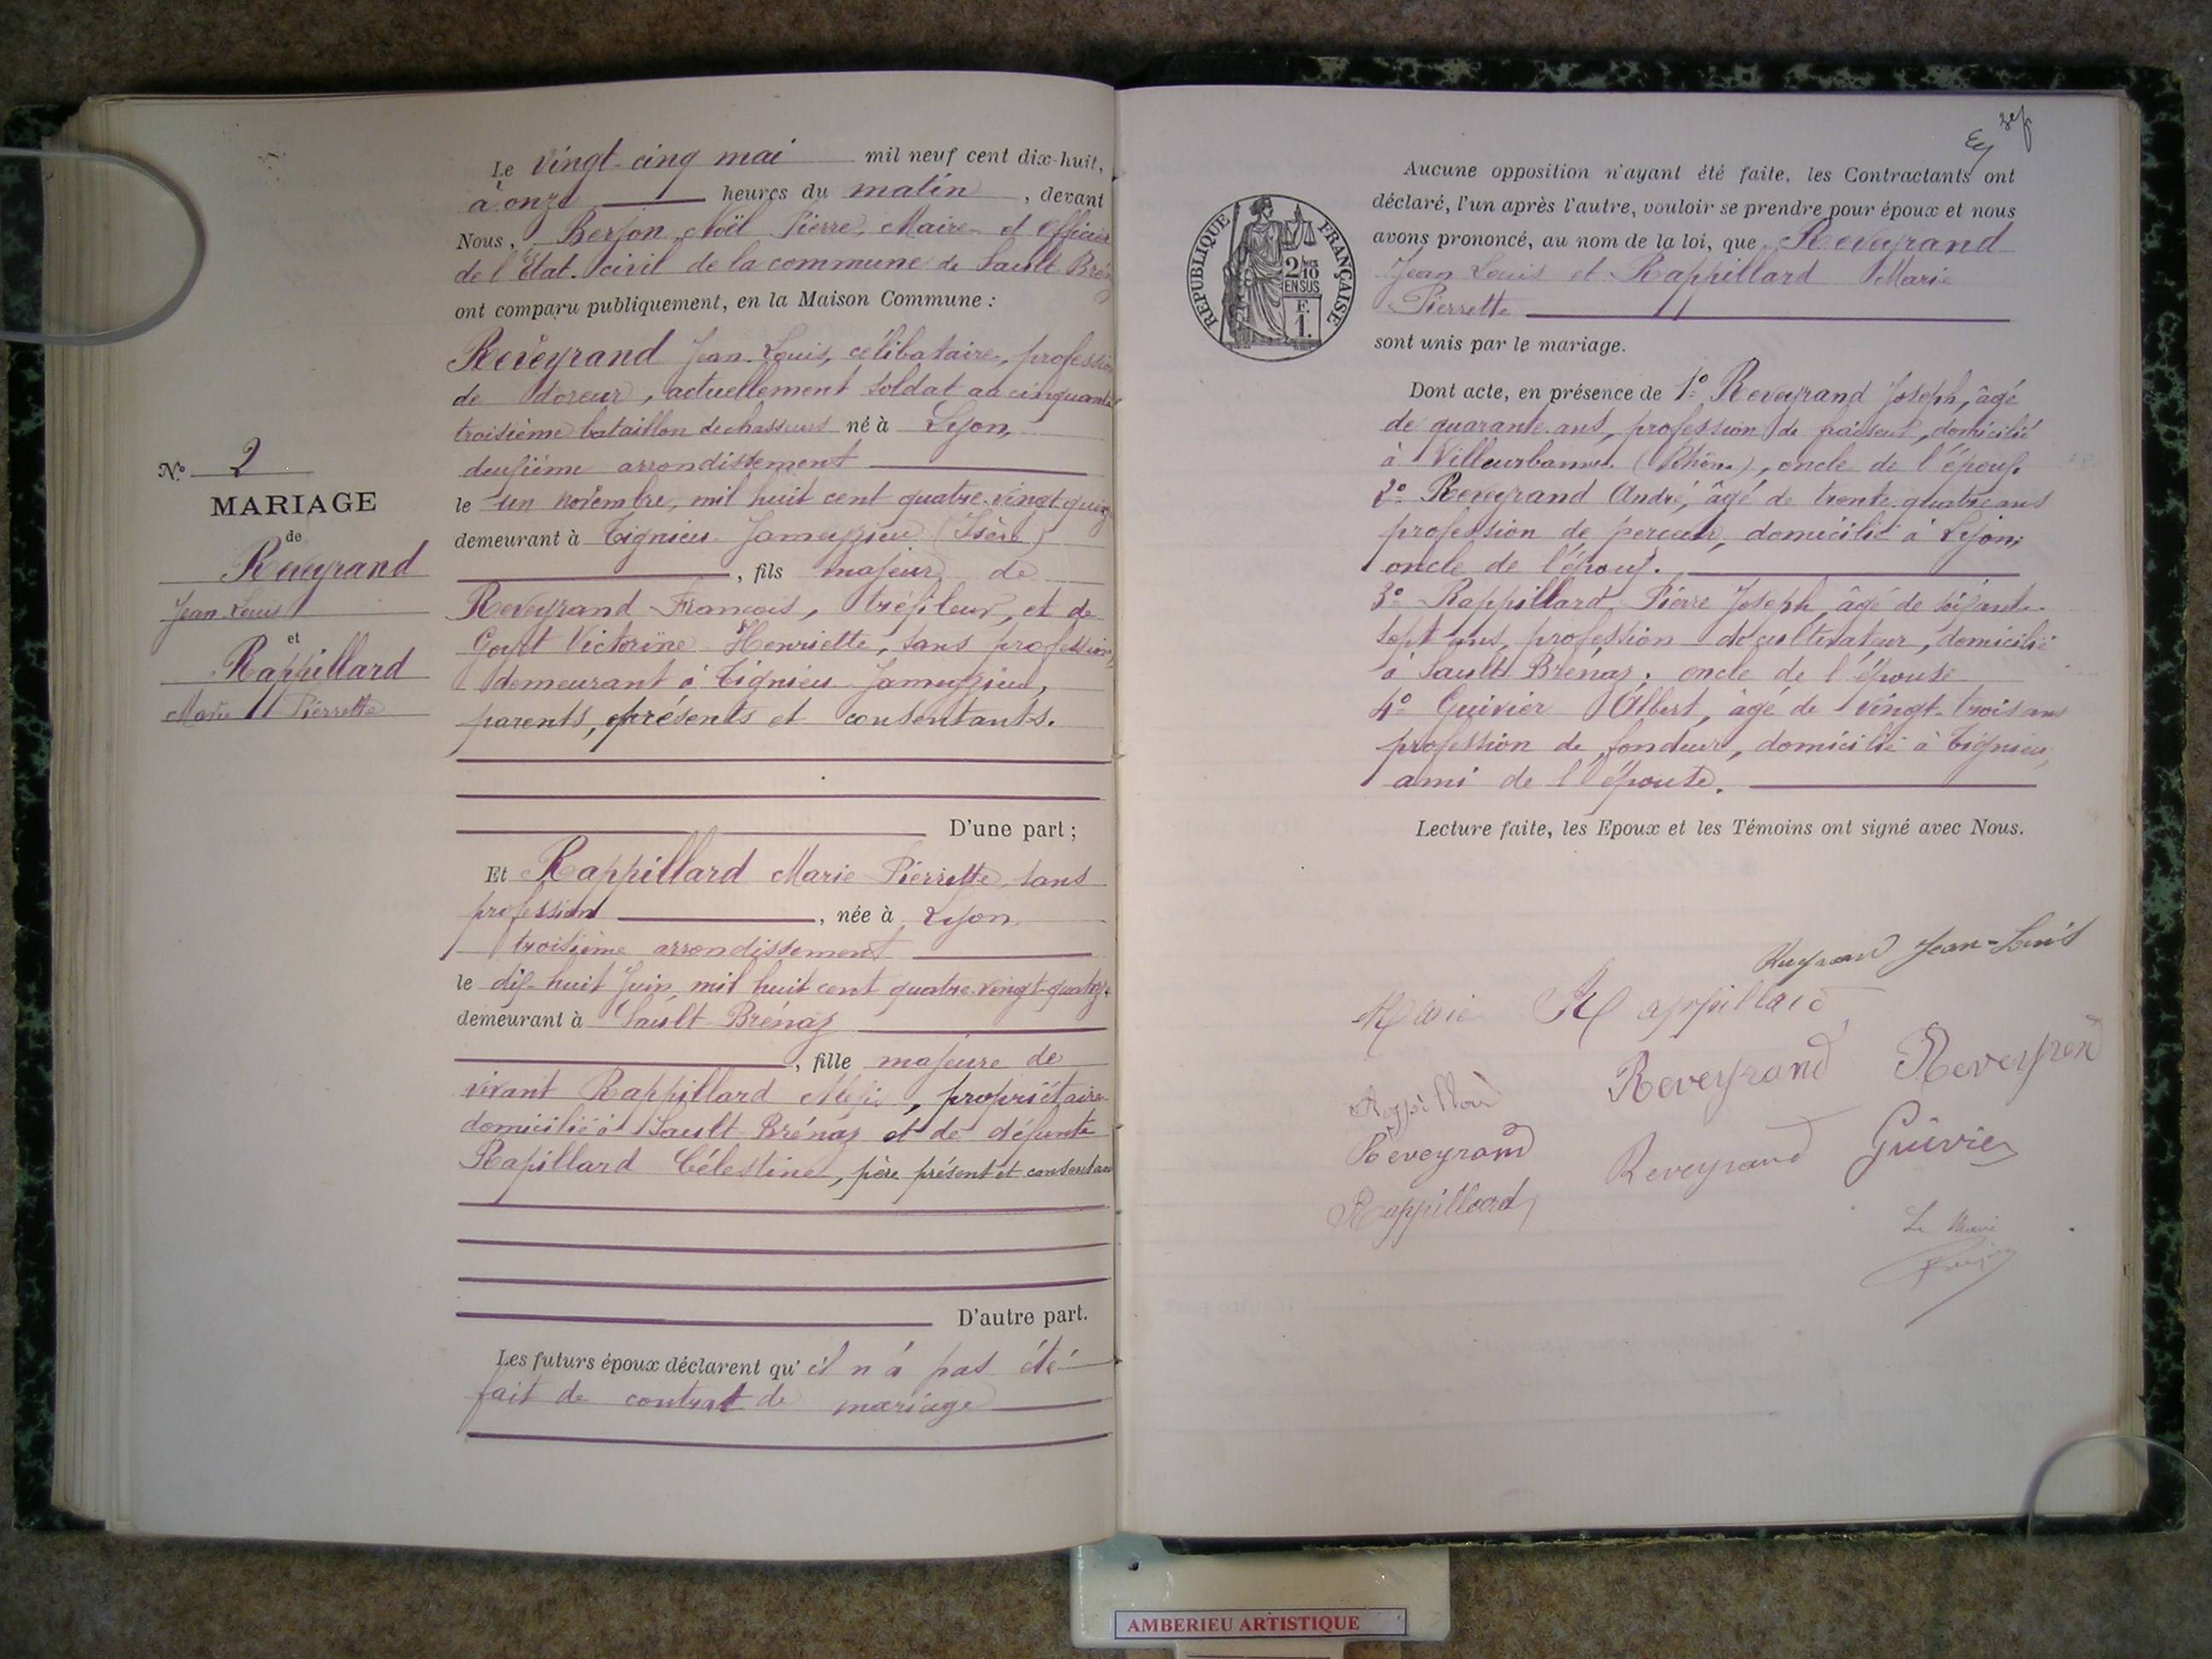 N° 2
MARIAGE
de
Reveyrand
Jean Louis
et
Rappillard
Marie Pierrette
Le vingt-cinq mai mil neuf cent dix-huit,
à onze heures du matin, devant
Nous, Berjon Noël Pierre, Maire et Officier
de l'Etat civil de la commune de Sault Brén
ont comparu publiquement, en la Maison Commune :
Reveyrand Jean Louis, célibataire, profession
de doreur, actuellement soldat au cinquante
troisième bataillon de chasseurs né à Lyon,
deuxième arrondissement
le un novembre, mil huit cent quatre-vingt-quinze
demeurant à Tignieu Jameyzieu (Isère)
, fils majeur de
Reveyrand François, tréfileur, et de
Victorine Henriette, sans profession,
demeurant à Tignieu Jameyzieu,
parents, présents et consentants.
D'une part ;
Et Rappillard Marie Pierrette, sans
profession, née à Lyon
troisième arrondissement
le dix-huit Juin, mil huit cent quatre-vingt-quatorze
demeurant à Sault-Brénaz
, fille majeure de
vivant Rappillard, propriétaire
domicilié à Sault-Brénaz et de défunte
Rapillard Célestine, père présent et consentant
D'autre part.
Les futurs époux déclarent qu'il n'a pas été
fait de contrat de mariage
REPUBLIQUE FRANÇAISE
2/10
EN SUS
F.
1.
Aucune opposition n'ayant été faite, les Contractants ont
déclaré, l'un après l'autre, vouloir se prendre pour époux et nous
avons prononcé, au nom de la loi, que Reveyrand
Jean Louis et Rappillard Marie
Pierrette
sont unis par le mariage.
Dont acte, en présence de 1° Reveyrand Joseph, âgé
de quarante ans, profession de fraiseur, domicilié
à Villeurbanne (Rhône), oncle de l'époux.
2° Reveyrand André, âgé de trente-quatre ans
profession de perceur, domicilié à Lyon,
oncle de l'époux.
3° Rappillard Pierre Joseph, âgé de soixante-
sept ans, profession de cultivateur, domicilié
à Sault Brénaz, oncle de l'épouse
4° Guivier Albert, âgé de vingt-trois ans
profession de fondeur, domicilié à Tignieu,
ami de l'épouse.
Lecture faite, les Epoux et les Témoins ont signé avec Nous.
Reyrand Jean-Louis
Marie Rappillard
Reveyrand
Rappillard
Reveyrand
Reveyrand
Guivier
Rappillard
Le Maire
AMBERIEU ARTISTIQUE